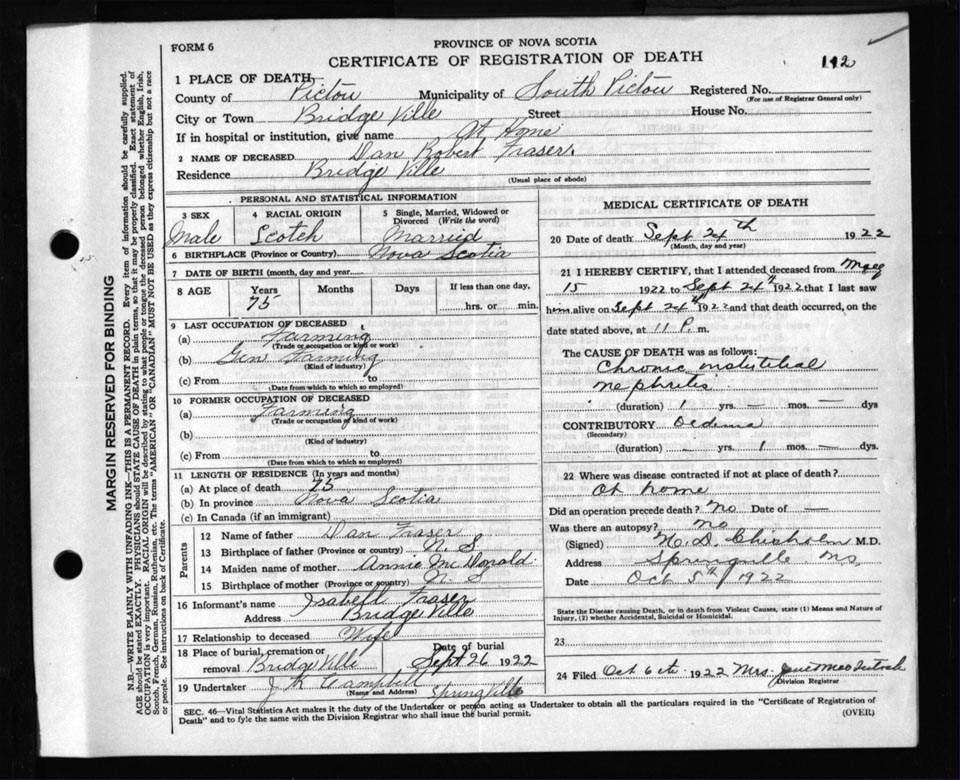 FORM 6
PROVINCE OF NOVA SCOTIA
CERTIFICATE OF REGISTRATION OF DEATH
112
1 PLACE OF DEATH,
County of Pictou Municipality of South Pictou Registered No.
(For use of Registrar General only)
City or Town Bridge Ville Street House No.
If in hospital or institution, give name At Home
2 NAME OF DECEASED Dan Robert Fraser.
Residence Bridge Ville
(Usual place of abode)
PERSONAL AND STATISTICAL INFORMATION
3 SEX 4 RACIAL ORIGIN 5 Single, Married, Widowed or Divorced (Write the word)
Male Scotch Married
6 BIRTHPLACE (Province or Country) Nova Scotia
7 DATE OF BIRTH (month, day and year
8 AGE Years Months Days If less than one day,
75 hrs. or min.
9 LAST OCCUPATION OF DECEASED
(a) Farming
(Trade or occupation or kind of work)
(b) Gen Farming
(Kind of industry)
(c) From to
(Date from which to which so employed)
10 FORMER OCCUPATION OF DECEASED
(a) Farming
(Trade or occupation or kind of work)
(b)
(Kind of industry)
(c) From to
(Date from which to which so employed)
11 LENGTH OF RESIDENCE (In years and months)
(a) At place of death 75
(b) In province Nova Scotia
(c) In Canada (if an immigrant)
Parents
12 Name of father Dan Fraser
13 Birthplace of father (Province or country) N. S
14 Maiden name of mother Annie McDonald
15 Birthplace of mother (Province or country) N. S
16 Informant's name Isabell Fraser
Address Bridge Ville
17 Relationship to deceased Wife
18 Place of burial, cremation or removal Bridge Ville Date of burial Sept 26 1922
19 Undertaker J K Campbell Springville
(Name and Address)
MEDICAL CERTIFICATE OF DEATH
20 Date of death Sept 24th 1922
(Month, day and year)
21 I HEREBY CERTIFY, that I attended deceased from
15 1922 to Sept 24th 1922 that I last saw
him alive on Sept 24th 1922 and that death occurred, on
date stated above, at 11 P. m.
The CAUSE OF DEATH was as follows:
Chronic
nephritis
(duration) 1 yrs. — mos. — dys
CONTRIBUTORY Oedema
(Secondary)
(duration) yrs. 1 mos. — dys.
22 Where was disease contracted if not at place of death?
At home
Did an operation precede death? no Date of —
Was there an autopsy? no
(Signed) Chisholm M.D.
Address Springville NS
Date Oct 5th 1922
State the Disease causing Death, or in death from Violent Causes, state (1) Means and Nature of
Injury, (2) whether Accidental, Suicidal or Homicidal.
23
24 Filed Oct 6th 1922 Mrs
Division Registrar
SEC. 46—Vital Statistics Act makes it the duty of the Undertaker or person acting as Undertaker to obtain all the particulars required in the "Certificate of Registration of
Death" and to fyle the same with the Division Registrar who shall issue the burial permit.
(OVER)
MARGIN RESERVED FOR BINDING
N.B.—WRITE PLAINLY WITH UNFADING INK—THIS IS A PERMANENT RECORD. Every item of information should be carefully supplied.
AGE should be stated EXACTLY. PHYSICIANS should STATE CAUSE OF DEATH in plain terms, so that it may be properly classified. Exact statement of
OCCUPATION is very important. RACIAL ORIGIN will be described by stating to what people or tongue the deceased person belonged whether English, Irish,
Scotch, French, German, Russian, Ruthenian, etc. The terms "AMERICAN" OR "CANADIAN" MUST NOT BE USED as they express citizenship but not a race
or people. See instructions on back of Certificate.